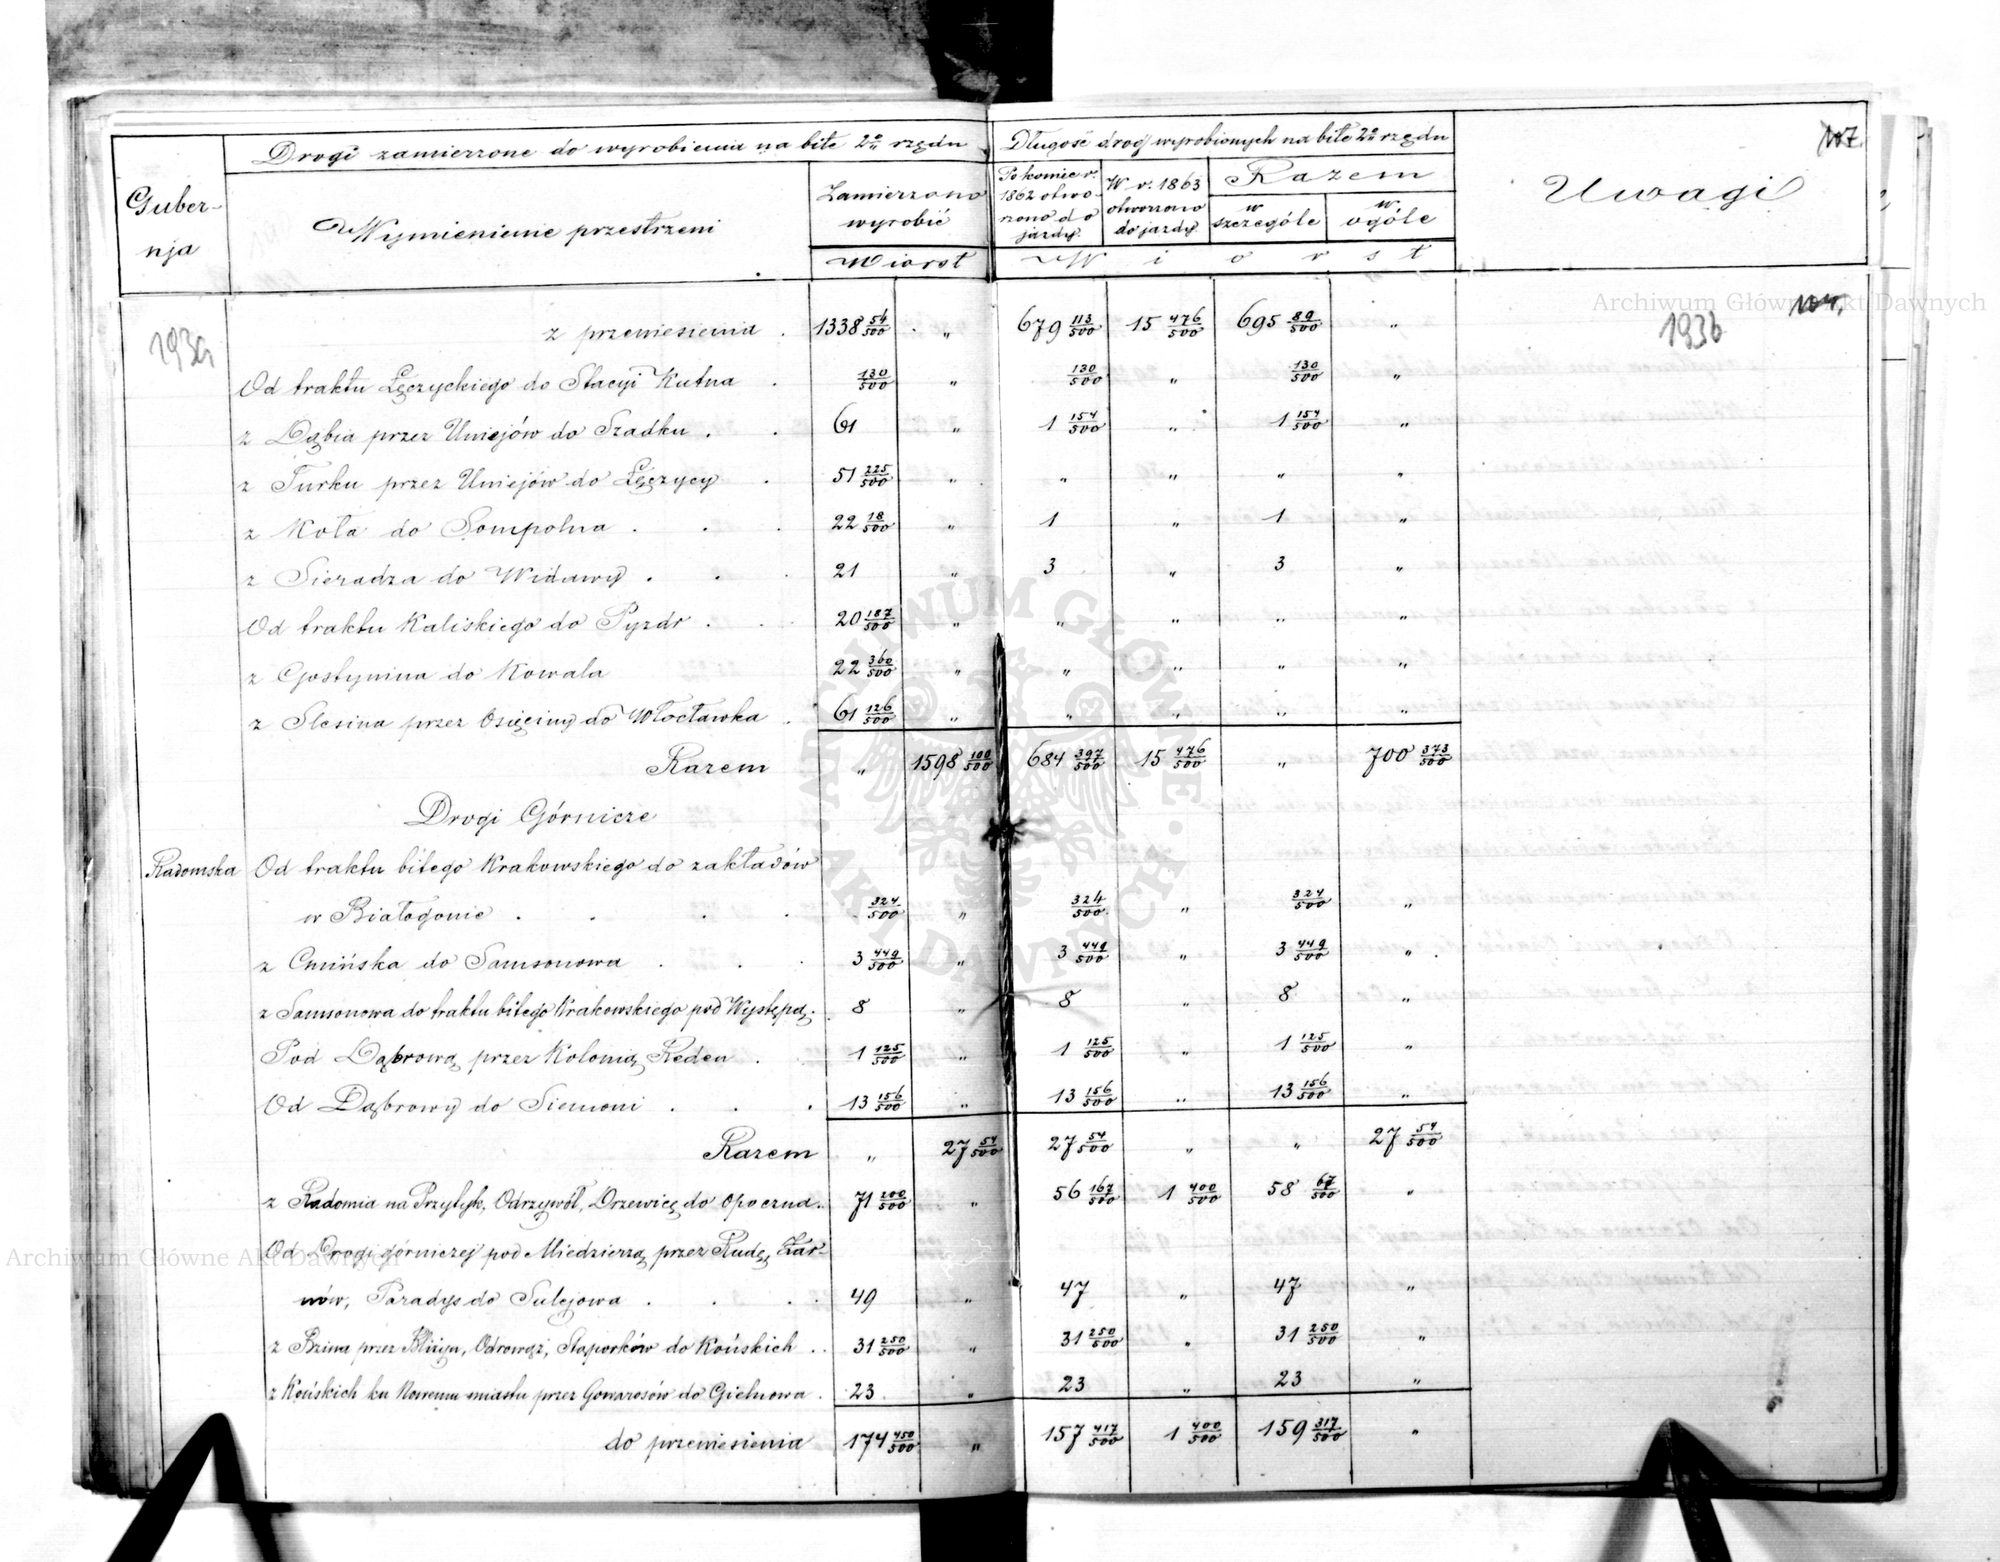 Drogi zamierzone do wyrobienia na bite 2o rzędu
Długość dróg wyrobionych na bite 2o rzędu
107.
Guber-
nja
Wymienienie przestrzeni
Zamierzono
wyrobić
Po koniec r.
1862 otwo-
rzono do
jazdy.
W r. 1863
otworzono
do jazdy
Razem
w
szczególe
w
ogóle
Uwagi
Wiorst
W i o r s t
193a
193b
104.
Archiwum Główne Akt Dawnych
z przeniesienia . 1338 54/500 . „ 679 113/500 15 476/500 695 89/500 „
Od traktu Łęczyckiego do Stacyi Kutna . 130/500 „ 130/500 „ 130/500 „
z Dąbia przez Uniejów do Szadku . . 61 „ 1 154/500 „ 1 154/500 „
z Turku przez Uniejów do Łęczycy . 51 225/500 „ „ „ „ „
z Koła do Sompolna . . . 22 18/500 „ 1 „ 1 „
z Sieradza do Widawy . . . 21 „ 3 „ 3 „
Od traktu Kaliskiego do Pyzdr . . 20 187/500 „ „ „ „ „
z Gostynina do Kowala 22 360/500 „ „ „ „ „
z Slesina przez Osięciny do Włocławka . 61 126/500 „ „ „ „ „
Razem „ 1598 100/500 684 397/500 15 476/500 „ 700 373/500
Drogi Górnicze
Radomska Od traktu bitego Krakowskiego do zakładów
w Białogonie . . . . 324/500 „ 324/500 „ 324/500 „
z Cmińska do Samsonowa . . . 3 449/500 „ 3 449/500 „ 3 449/500 „ .
z Samsonowa do traktu bitego Krakowskiego pod Występą . 8 „ 8 „ 8 „
Pod Dąbrową przez Kolonią Reden . 1 125/500 „ 1 125/500 „ 1 125/500 „
Od Dąbrowy do Siemoni . . . 13 156/500 „ 13 156/500 „ 13 156/500 „
Razem „ 27 54/500 27 54/500 „ „ 27 54/500
z Radomia na Przytyk, Odrzywół, Drzewicę do Opoczna . 71 200/500 „ 56 167/500 1 400/500 58 67/500 „
Od Drogi górniczej pod Miedzierzą przez Rudę, Żar-
nów, Paradyz do Sulejowa . . . 49 „ 47 „ 47 „
z Bzina przez Bliżyn, Odrowąż, Stąporków do Końskich . . 31 250/500 „ 31 250/500 „ 31 250/500 „
z Końskich ku Nowemu miastu przez Gowarosów do Gielniowa . 23 „ 23 „ 23 „
do przeniesienia 174 450/500 „ 157 417/500 1 400/500 159 317/500 „
Archiwum Główne Akt Dawnych
ARCHIWUM GŁÓWNE · AKT DAWNYCH ·